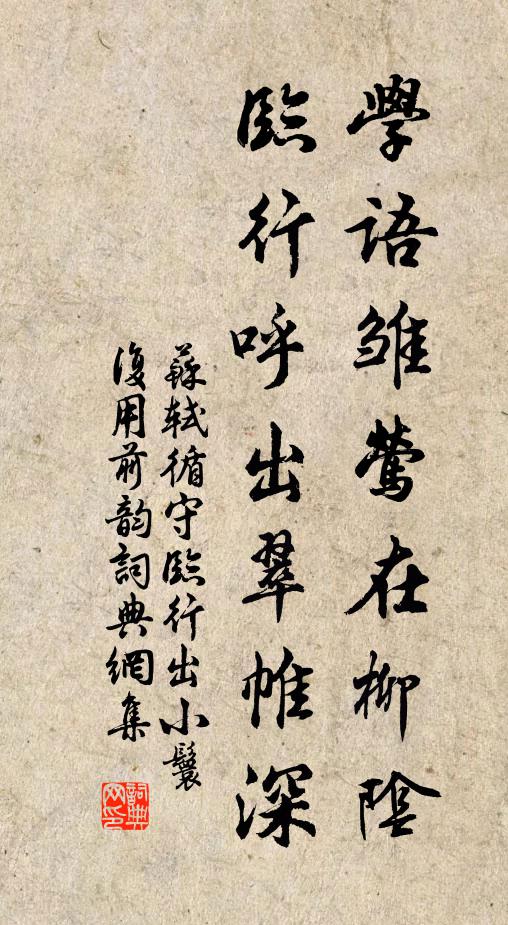 學語雏莺在柳陰
臨行呼出翠帷深
蘇軾循守臨行出小鬟
復用前韵詞典網集
詞典网印